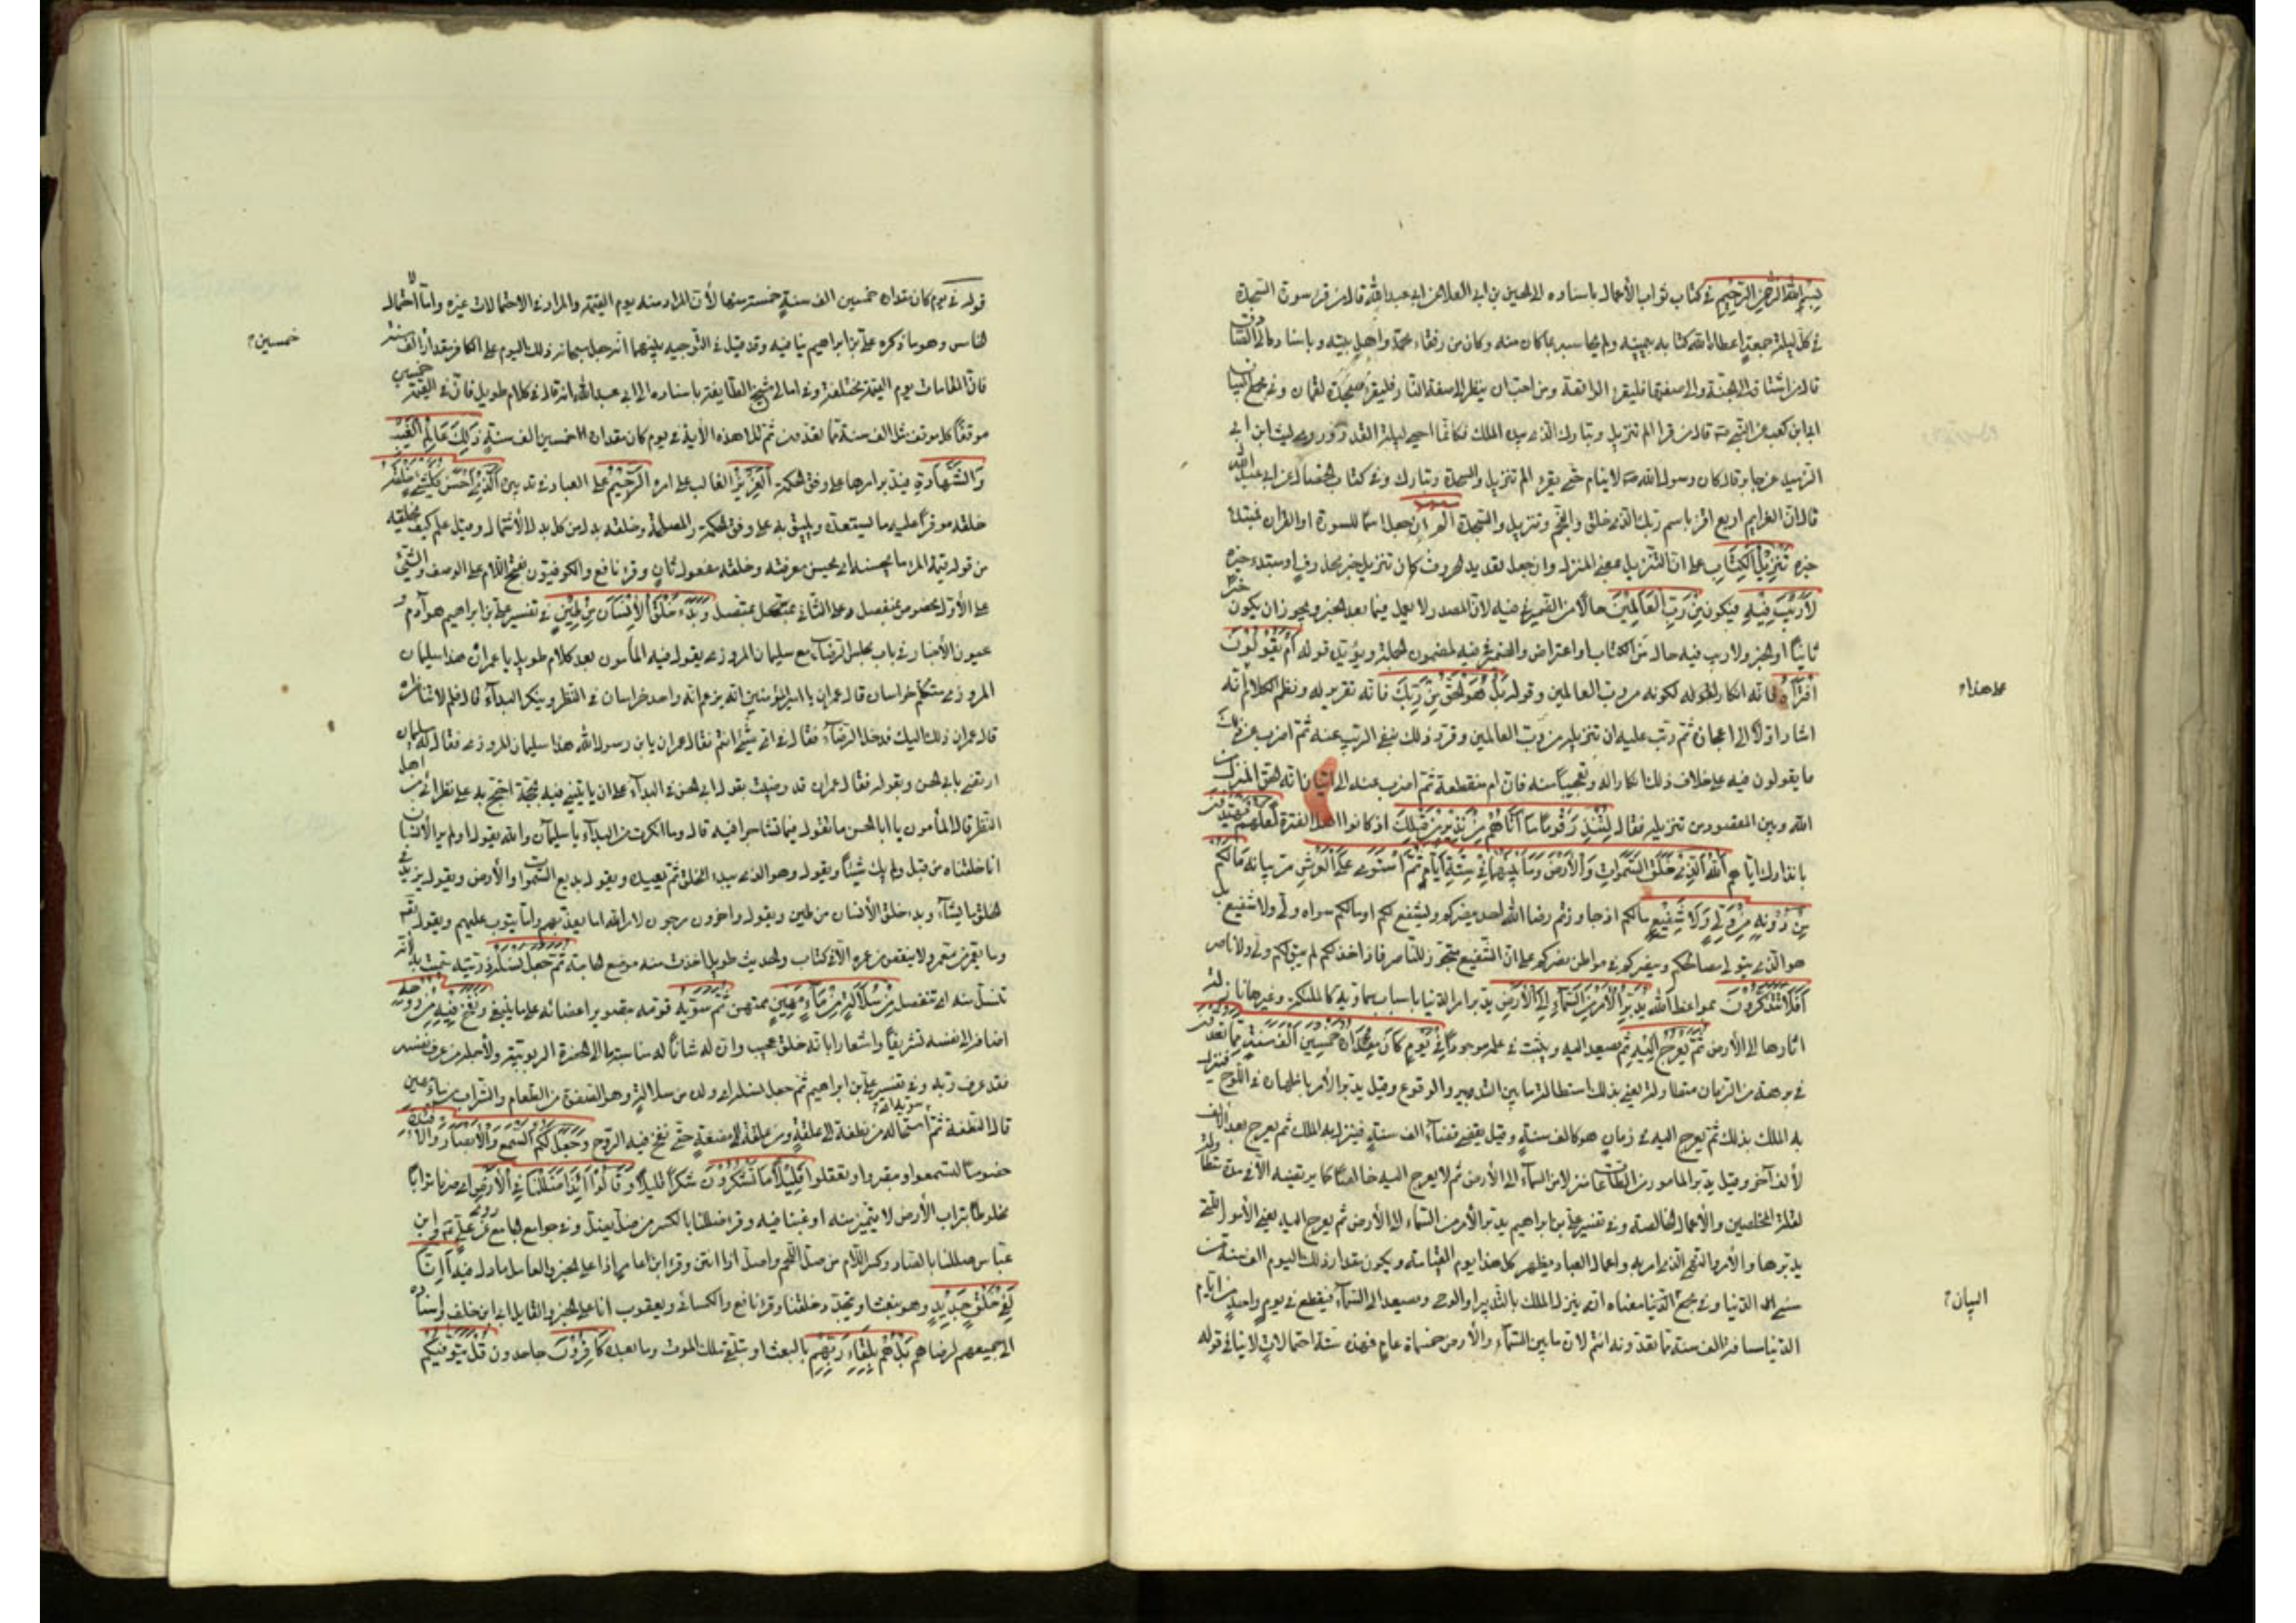 بسم الله الرحمن الرحيم في كتاب ثواب الأعمال باسناده الى الحسين بن ابي العلا عن ابي عبد الله قال من قرء سورة السجدة
في كل ليلة جمعة اعطاه الله كتابه بيمينه ولم يحاسبه بما كان منه وكان من رفقاء محمد واهل بيته وباسناده الى الصادق
قال من اشتاق الى الجنة والى صفتها فليقرء الواقعة ومن احب ان ينظر الى صفة النار فليقرء سجدة لقمان وفي مجمع البيان
ابى بن كعب عن النبي قال من قرأ الم تنزيل وتبارك الذي بيده الملك فكانما احيى ليلة القدر وروى ليث ابن ابي
الزبير عن جابر قال كان رسول الله لا ينام حتى يقرء الم تنزيل السجدة وتبارك وفي كتاب الخصال عن ابي عبد الله
قال ان العزايم اربع اقرء باسم ربك الذي خلق والنجم وتنزيل والسجدة الم ان جعل اسما للسورة او القرآن فمبتداء
خبره تنزيل الكتاب على ان التنزيل بمعنى المنزل وان جعل تعديد الحروف كان تنزيل خبر محذوف او مبتدء خبره
لا ريب فيه فيكون من رب العالمين حالا من الضمير في فيه لان المصدر لا يعمل فيما بعد الخبر ويجوز ان يكون خبرا
ثانيا او الخبر ولا ريب فيه حال من الكتاب او اعتراض والضمير في فيه لمضمون الجملة ويؤيده قوله أم يقولون
افتراه فانه انكار لكونه من رب العالمين وقوله بل هو الحق من ربك فانه تقرير له ونظم الكلام انه
على هذا
اشار اولا الى اعجازه ثم رتب عليه ان تنزيله من رب العالمين وقرر ذلك بنفي الريب عنه ثم اضرب عن ذلك
ما يقولون فيه على خلاف ذلك انكارا له وتعجيبا منه فان ام منقطعة ثم اضرب عنه الى اثبات انه الحق المنزل من
الله وبين المقصود من تنزيله فقال لتنذر قوما ما أتاهم من نذير من قبلك اذ كانوا اهل الفترة لعلهم يهتدون
بانذارك اياهم الله الذي خلق السموات والأرض وما بينهما في ستة أيام ثم استوى على العرش مر بيانه ما لكم
من دونه من ولي ولا شفيع ما لكم اذا جاوزتم رضا الله احد ينصركم ويشفع لكم او ما لكم سواه ولي ولا شفيع بل
هو الذي يتولى مصالحكم وينصركم في مواطن نصركم على ان الشفيع متجوز للناصر فاذا خذلكم لم يبق لكم ولي ولا ناصر
أفلا تتذكرون بمواعظ الله يدبر الأمر من السماء إلى الأرض يدبر امر الدنيا باسباب سماوية كالملئكة وغيرها نازلة
اثارها الى الأرض ثم يعرج إليه ثم يصعد اليه ويثبت في علمه موجودا في يوم كان مقداره خمسين ألف سنة مما تعدون
في برهة من الزمان متطاولة يعني بذلك استطالة ما بين التدبير والوقوع وقيل يدبر الأمر باظهاره في اللوح فينزل
به الملك بذلك ثم يعرج اليه في زمان هو كالف سنة وقيل يقضي قضاء الف سنة فينزل به الملك ثم يعرج بعد الالف
لألف آخر وقيل يدبر المامور من الطاعات منزلا من السماء الى الأرض ثم لا يعرج اليه خالصا كما يرتضيه الا في مدة متطاولة
لقلة المخلصين والأعمال الخالصة وفي تفسير علي بن ابراهيم يدبر الأمر من السماء الى الأرض ثم يعرج اليه يعني الأمور التي
يدبرها والأمر والنهي الذي امر به واعمال العباد فيظهر كل هذا يوم القيامة ويكون مقدار ذلك اليوم الف سنة من
سني الدنيا وفي مجمع معناه انه ينزل الملك بالتدبير او الوحي ويصعد الى السماء فيقطع في يوم واحد من ايام
البيان
الدنيا مسافة الف سنة مما تعدونه انتم لان ما بين السماء والأرض خمسمأة عام فهذه ستة احتمالات لا ينافي قوله
قوله في يوم كان مقداره خمسين الف سنة لأن المراد منه يوم القيمة والمراد في الاحتمالات غيره واما الاحتمال
الخامس وهو ما ذكره علي بن ابراهيم ينافيه وقد قيل في التوجيه بينهما انه جعل سبحانه ذلك اليوم على الكافر مقدار الف سنة
خمسين
فان المقامات يوم القيمة مختلفة وفي امالي شيخ الطايفة باسناده الى ابي عبد الله انه قال في كلام طويل فان في القيمة خمسين
موقفا كل موقف مثل الف سنة مما تعدون ثم تلا هذه الأية في يوم كان مقداره خمسين الف سنة ذلك عالم الغيب
والشهادة فيدبر امرها على وفق الحكمة العزيز الغالب على امره الرحيم على العباد في تدبيره الذي أحسن كل شيء خلقه
خلقه موفرا عليه ما يستعده ويليق به على وفق الحكمة والمصلحة وخلقه بدل من كل بدل الاشتمال وقيل علم كيف يخلقه
من قوله قيمة المرء ما يحسنه اي يحسن معرفته وخلقه مفعول ثان وقرء نافع والكوفيون بفتح اللام على الوصف والشيء
على الأول مخصوص بمنفصل وعلى الثاني بمتصل وبدء خلق الإنسان من طين في تفسير علي بن ابراهيم هو آدم
عيون الأخبار في باب مجلس الرضا مع سليمان المروزي يقول فيه المأمون بعد كلام طويل يا عمران هذا سليمان
المروزي متكلم خراسان قال عمران يا امير المؤمنين انه يزعم انه واحد خراسان في النظر وينكر البداء قال فلم لا تناظره
قال عمران ذلك اليك فدخل الرضا فقال في اي شيء انتم فقال عمران يابن رسول الله هذا سليمان المروزي فقال له سليمان
اترضى بابي الحسن وبقوله فقال عمران قد رضيت بقول ابي الحسن في البداء على ان ياتيني فيه بحجة احتج بها على نظرائي من اهل
النظر قال المأمون يا ابا الحسن ما تقول فيما تشاجرا فيه قال وما انكرت من البداء يا سليمان والله يقول اولم ير الأنسان
انا خلقناه من قبل ولم يك شيئا ويقول وهو الذي يبدء الخلق ثم يعيده ويقول بديع السموات والأرض ويقول يزيد في
الخلق ما يشاء وبدء خلق الأنسان من طين ويقول واخرون مرجون لأمر الله اما يعذبهم واما يتوب عليهم ويقول
وما يعمر من معمر ولا ينقص من عمره الا في كتاب والحديث طويل اخذت منه موضع الحاجة ثم جعل نسله ذريته سميت به لأنها
تنسل منه اي تنفصل من سلالة من ماء مهين ممتهن ثم سويه قومه بتصوير اعضائه على ما ينبغي ونفخ فيه من روحه
اضافه الى نفسه تشريفا واشعارا بانه خلق عجيب وان له شانا له مناسبة ما الى الحضرة الربوبية ولأجله من عرف نفسه
فقد عرف ربه وفي تفسير علي بن ابراهيم ثم جعل نسله اي ولده من سلالة وهو الصفوة من الطعام والشراب من ماء مهين
قال النطفة ثم سويه استحاله من نطفة الى علقة ومن علقة الى مضغة حتى نفخ فيه الروح وجعل لكم السمع والأبصار والأفئدة
خصوصا لتسمعوا وتبصروا وتعقلوا قليلا ما تشكرون شكرا قليلا وقالوا أئذا ضللنا في الأرض اي صرنا ترابا
مخلوطا بتراب الأرض لا يتميز منه او غبنا فيه وقرء ضللنا بالكسر من ضل يضل وفي جوامع الجامع روى عن علي وابن
عباس صللنا بالصاد وكسر اللام من صل اللحم واصل اذا انتن وقرء ابن عامر اذا على الخبر والعامل ما دل عليه أإنا
لفي خلق جديد وهو نبعث او يجدد خلقنا وقرء نافع والكسائي ويعقوب انا على الخبر والقايل ابي ابن خلف واسناده
الى جميعهم لرضاهم بل هم بلقاء ربهم بالبعث او بتلقي ملك الموت وما بعده كافرون جاحدون قل يتوفيكم